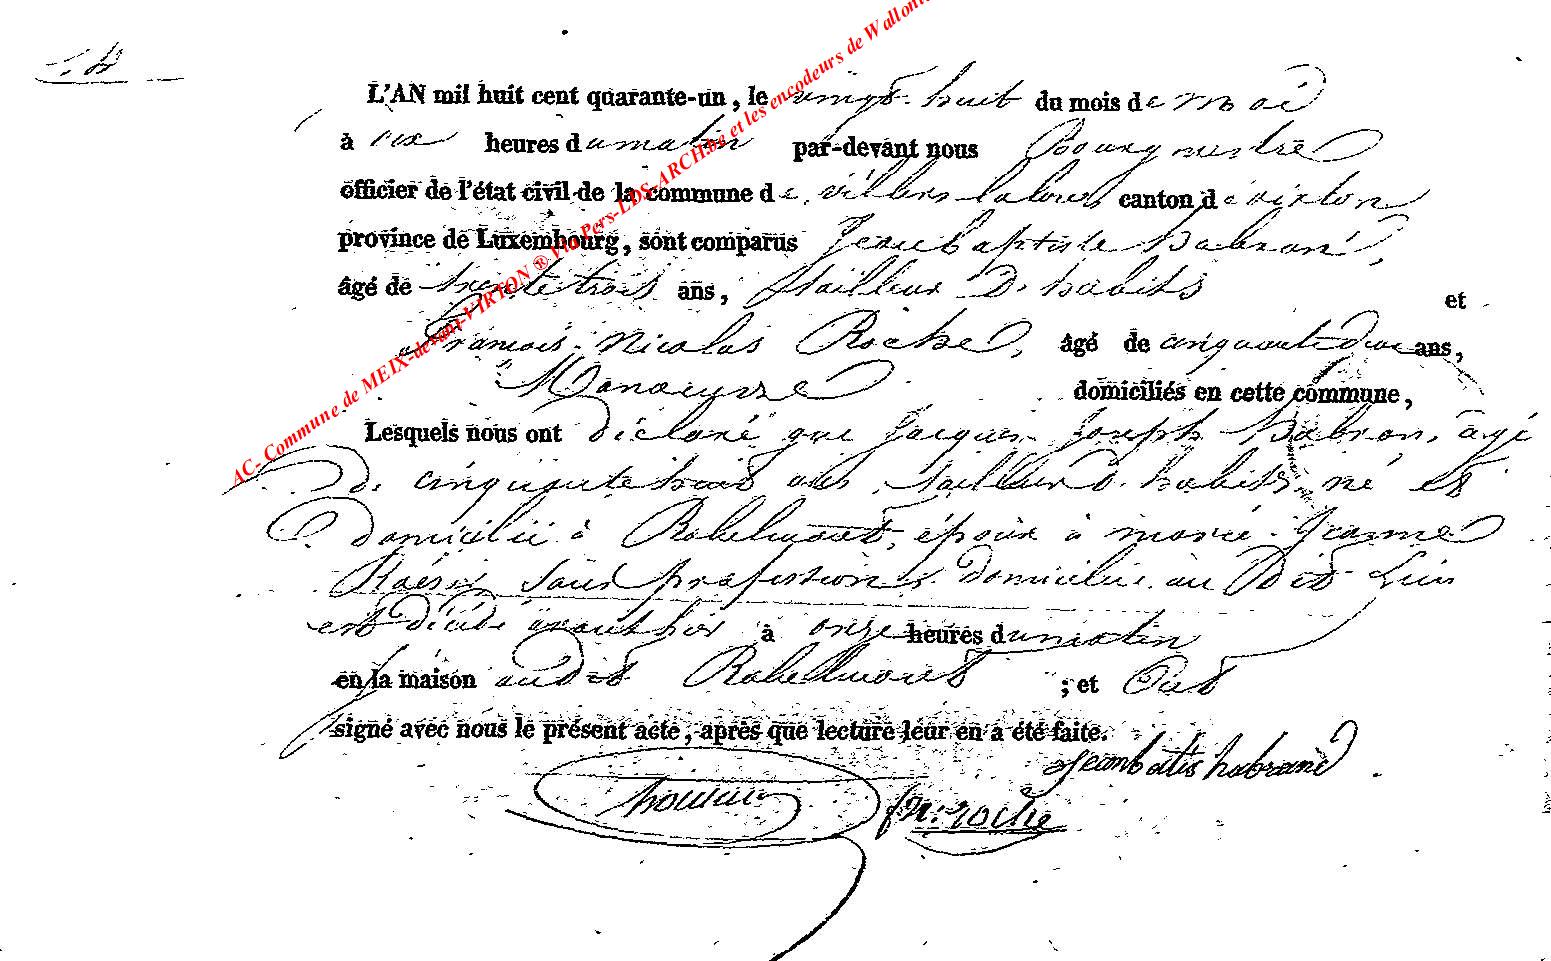 L'AN mil huit cent quarante-un, le vingt huit du mois de mai
à heures du matin par-devant nous Bourgmestre
officier de l'état civil de la commune de villers la loue, canton de virton
province de Luxembourg, sont comparus Jean baptiste habran,
âgé de trente trois ans, tailleur D. habits et
francois Nicolas Roche, âgé de cinquante deux ans,
Manoeuvre domiciliés en cette commune,
Lesquels nous ont déclaré que Jacques Joseph habran, agé
De cinquante trois ans, tailleur D. habits né et
Domicilié à Robelmont, époux à marie Jeanne
sans profession Domiciliée au Dit Lieu
est décédé avant hier à onze heures du matin
en la maison audit Robelmont ; et ont
signé avec nous le présent acte, après que lecture leur en a été faite.
Jeanbatis habrand
fn: roche
AC- Commune de MEIX-devant-VIRTON ® Via Pers-LDS-ARCH.be et les encodeurs de Wallonie